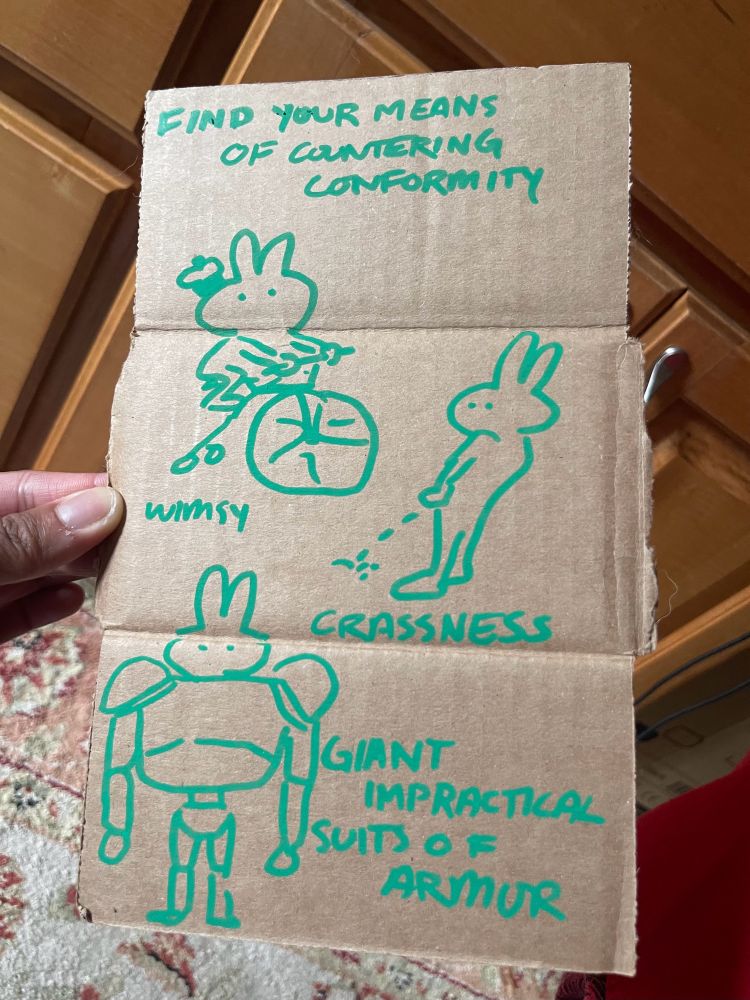 FIND YOUR MEANS
OF COUNTERING
CONFORMITY
WIMSY
CRASSNESS
GIANT
IMPRACTICAL
SUITS OF
ARMUR